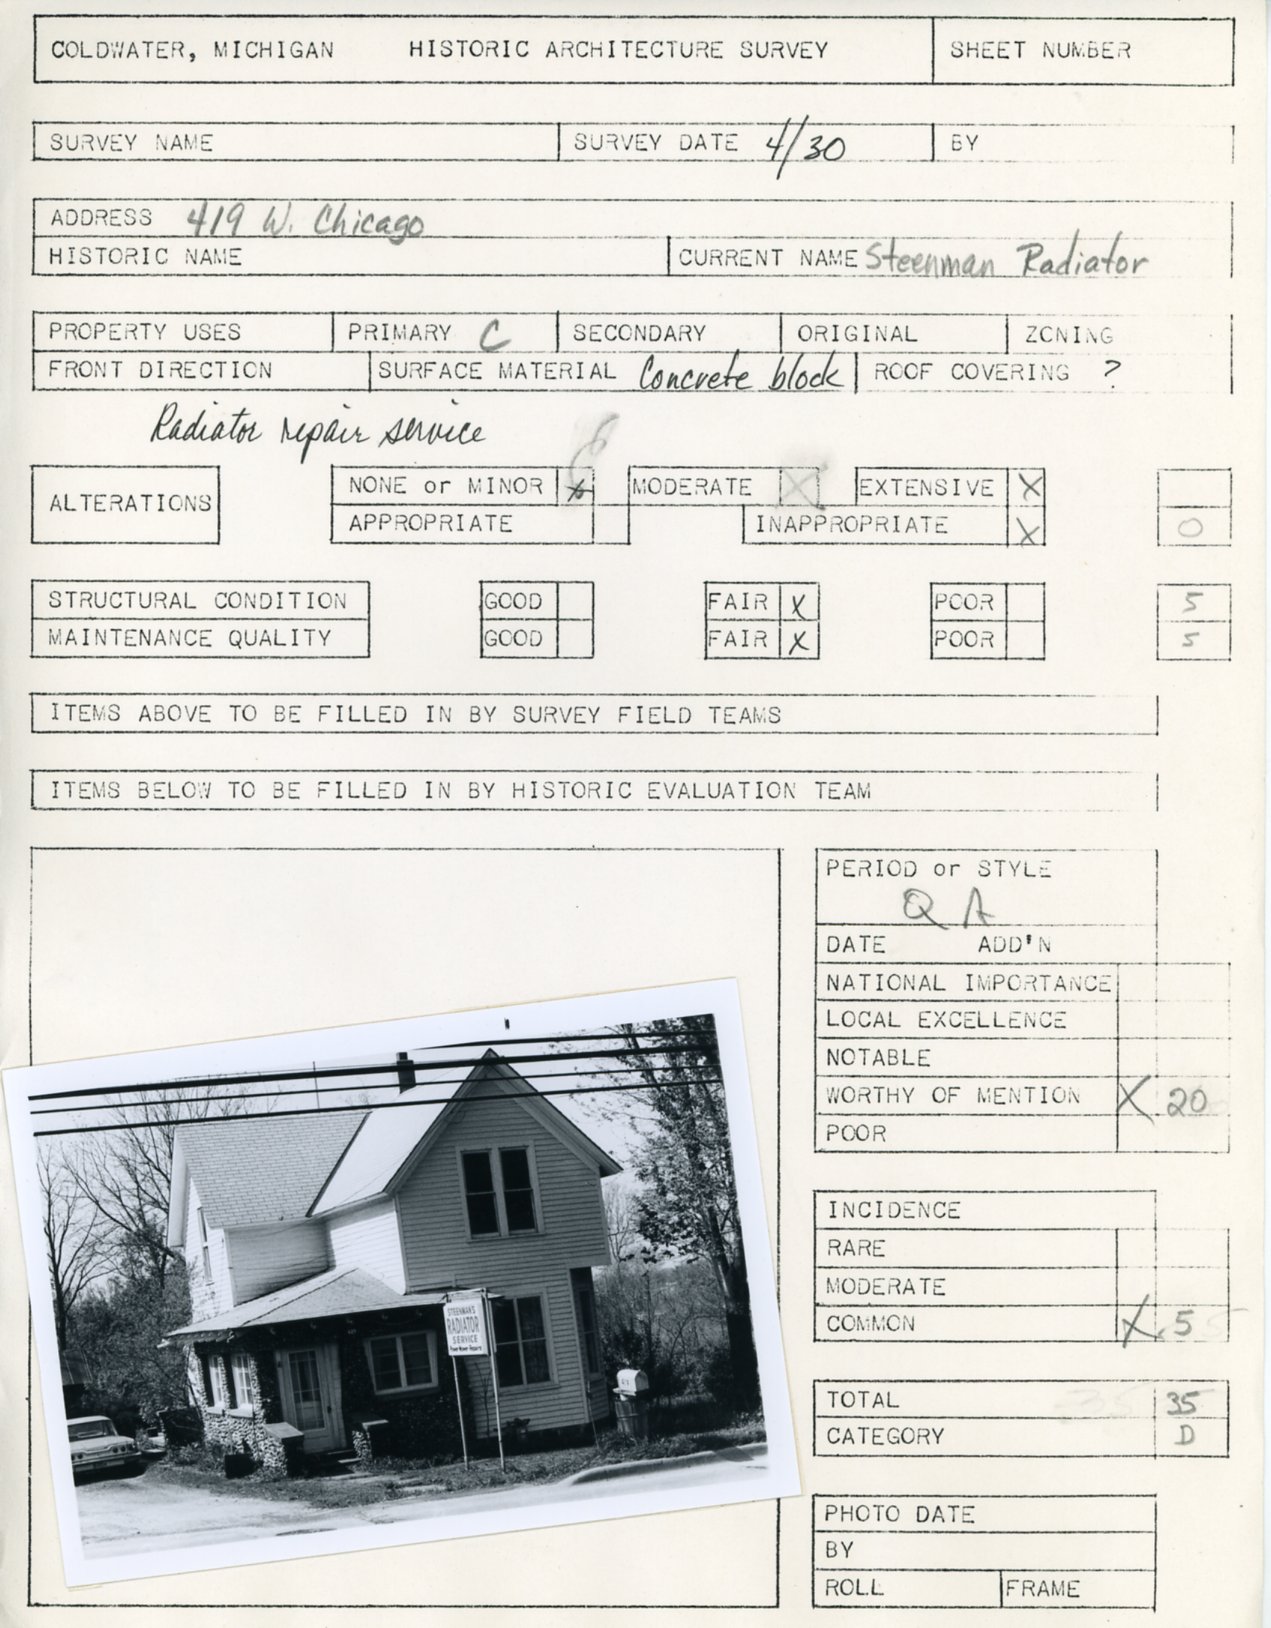 COLDWATER, MICHIGAN HISTORIC ARCHITECTURE SURVEY SHEET NUMBER
SURVEY NAME SURVEY DATE 4/30 BY
ADDRESS 419 W. Chicago
HISTORIC NAME CURRENT NAME Steenman Radiator
PROPERTY USES PRIMARY C SECONDARY ORIGINAL ZONING
FRONT DIRECTION SURFACE MATERIAL Concrete block ROOF COVERING ?
Radiator repair service
ALTERATIONS NONE or MINOR X MODERATE X EXTENSIVE X
APPROPRIATE INAPPROPRIATE X 0
STRUCTURAL CONDITION GOOD FAIR X POOR 5
MAINTENANCE QUALITY GOOD FAIR X POOR 5
ITEMS ABOVE TO BE FILLED IN BY SURVEY FIELD TEAMS
ITEMS BELOW TO BE FILLED IN BY HISTORIC EVALUATION TEAM
PERIOD or STYLE
Q A
DATE ADD'N
NATIONAL IMPORTANCE
LOCAL EXCELLENCE
NOTABLE
WORTHY OF MENTION X 20
POOR
INCIDENCE
RARE
MODERATE
COMMON X 5
TOTAL 35
CATEGORY D
PHOTO DATE
BY
ROLL FRAME
STEENMAN'S
RADIATOR
SERVICE
Power Mower Repairs